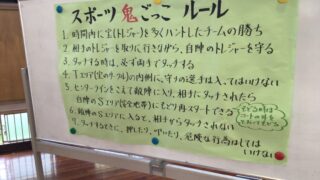 スポーツ鬼ごっこ ルール
1. 時間内に宝(トレジャー)を多くハントしたチームの勝ち
2. 相手のトレジャーを取りに行きながら、自陣のトレジャーを守る
3. タッチする時は、必ず両手でタッチする
4. Tエリア(宝のサークル)の内側に、守りの選手は入ってはいけない
5. センターラインをこえて敵陣に入り、相手にタッチされたら
自陣のSエリア(安全地帯)にもどり再スタートできる
もどる時は
コートの外を
6. 敵陣のSエリアに入ると、相手からタッチされない
7. タッチするときに、押したり、叩いたり、危険な行為はしては
いけない